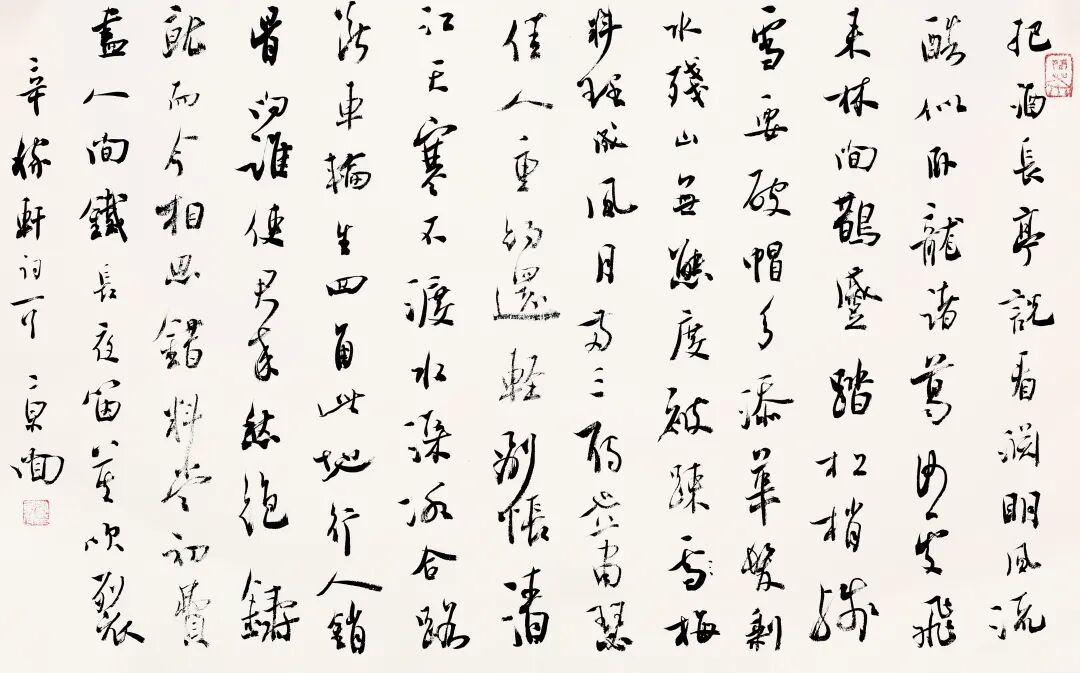 把酒長亭說看淵明風流
酷似卧龍諸葛何處飛
來林間鵲蹙踏松梢殘
雪要破帽多添華髮剩
水殘山無態度被疎雪梅
料理成風月兩三雁也蕭瑟
佳人重約還輕別悵清
江天寒不渡水深冰合路
斷車輪生四角此地行人銷
骨問誰使君來愁絕鑄
就而今相思錯料當初費
盡人間鐵長夜笛莫吹裂
辛稼軒詞一首